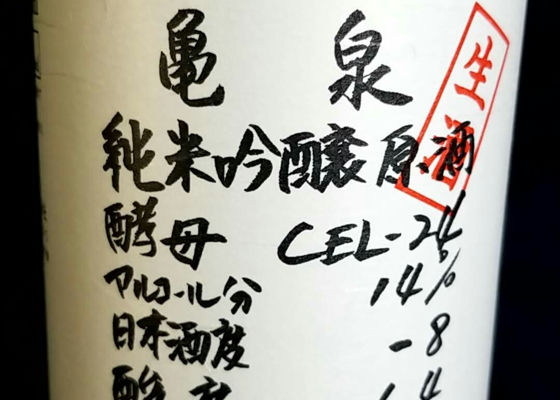 亀泉
生酒
純米吟醸原酒
酵母 CEL-24
アルコール分 14%
日本酒度 -8
酸度 1.4